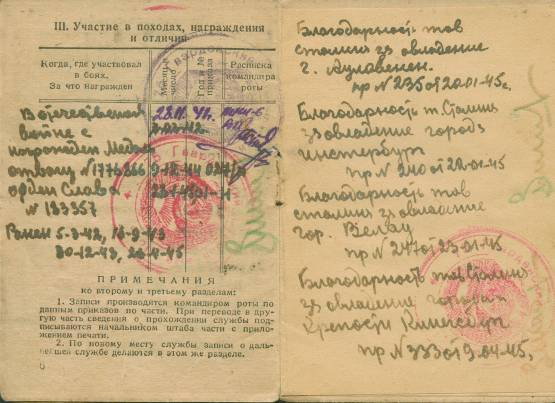 III. Участие в походах, награждения
и отличия
Когда, где участвовал
в боях.
За что награжден
Месяц и
число
Год и №
приказа
Расписка
командира
роты
В отечественой
войне с
22.11.41.
2-02-42
награжден Медал
отвагу №1776266 9-12-44
орден Слава
№ 133357
Ранен 5-3-42, 16-9-43
30-12-43, 20-4-45
ПРИМЕЧАНИЯ
ко второму и третьему разделам:
1. Записи производятся командиром роты по
данным приказов по части. При переводе в дру-
гую часть сведения о прохождении службы под-
писываются начальником штаба части с прило-
жением печати.
2. По новому месту службы записи о даль-
нейшей службе делаются в этом же разделе.
6
Благодарность тов
сталина за овладение
г.
пр №235 от 20.01-45г.
Благодарность т. Сталина
за овладение города
инстербург
пр №240 от 22-01-45
Благодарность тов
сталина за овладение
гор. Велау
пр №247 от 23-01-45
Благодарность тов Сталина
за овладение городом
крепость
пр №333 от 9-04-45.